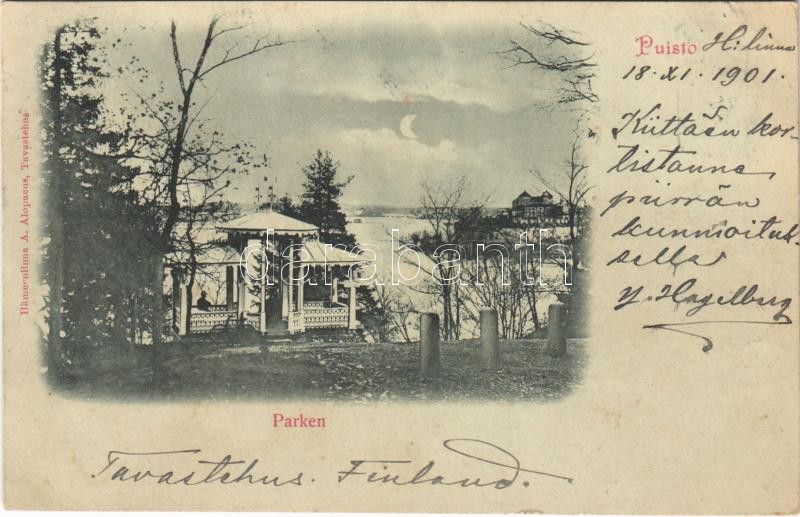 Puisto H:linna
18.XI.1901.
Kiittäen kor-
tistanne
piirrän
kunnioituk-
sella
Y. Hagelberg
Hämeenlinna A. Alopaeus, Tavastehus
darabanth
Parken
Tavastehus. Finland.